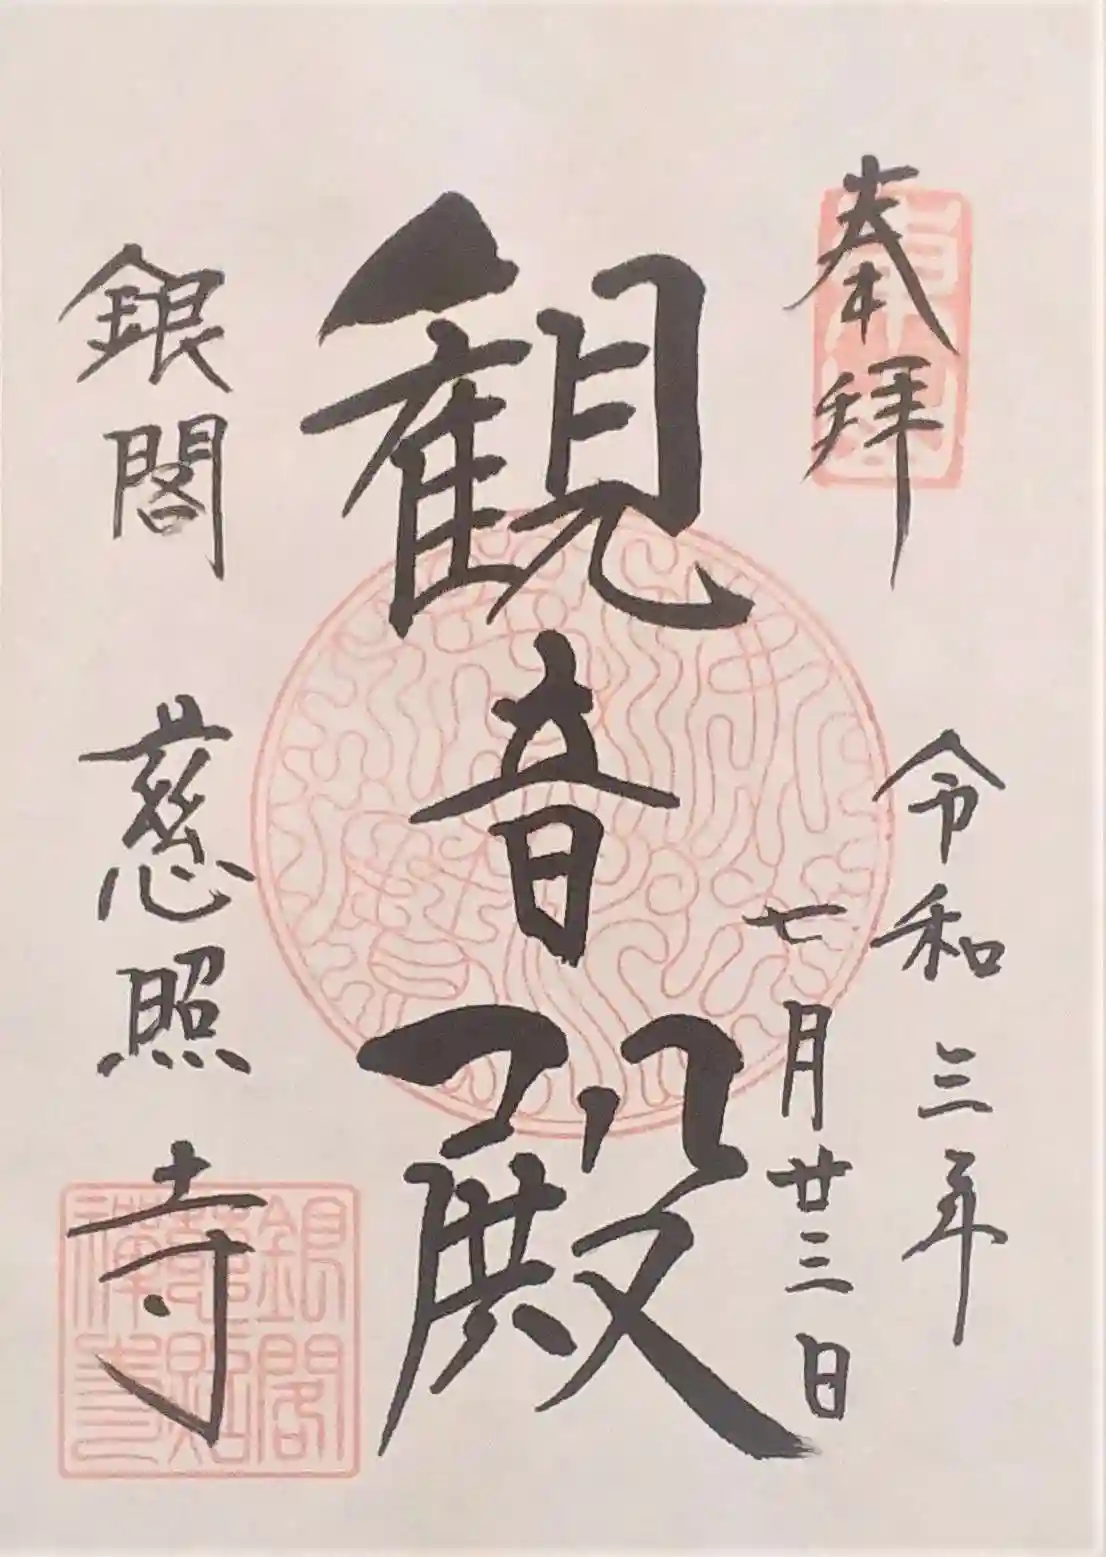 奉拝
令和三年
七月廿三日
観音殿
銀閣 慈照寺
銀閣
慈照
禅寺